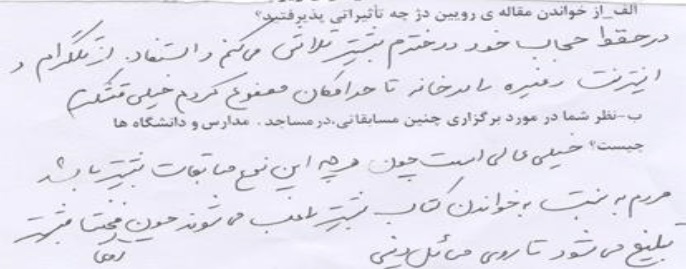 الف_از خواندن مقاله ی رویین دژ چه تأثیراتی پذیرفتید؟
در حفظ حجاب خود و دخترم بیشتر تلاش می کنم و استفاده از تلگرام و
اینترنت و غیره را در خانه تا حد امکان ممنوع کردم خیلی متشکرم
ب-نظر شما در مورد برگزاری چنین مسابقاتی،در مساجد . مدارس و دانشگاه ها
چیست؟ خیلی عالی است چون هر چه این نوع مسابقات بیشتر باشد
مردم به نسبت به خواندن کتاب بیشتر راغب می شوند چون بیشتر
تبلیغ می شود تا روی مسائل دینی